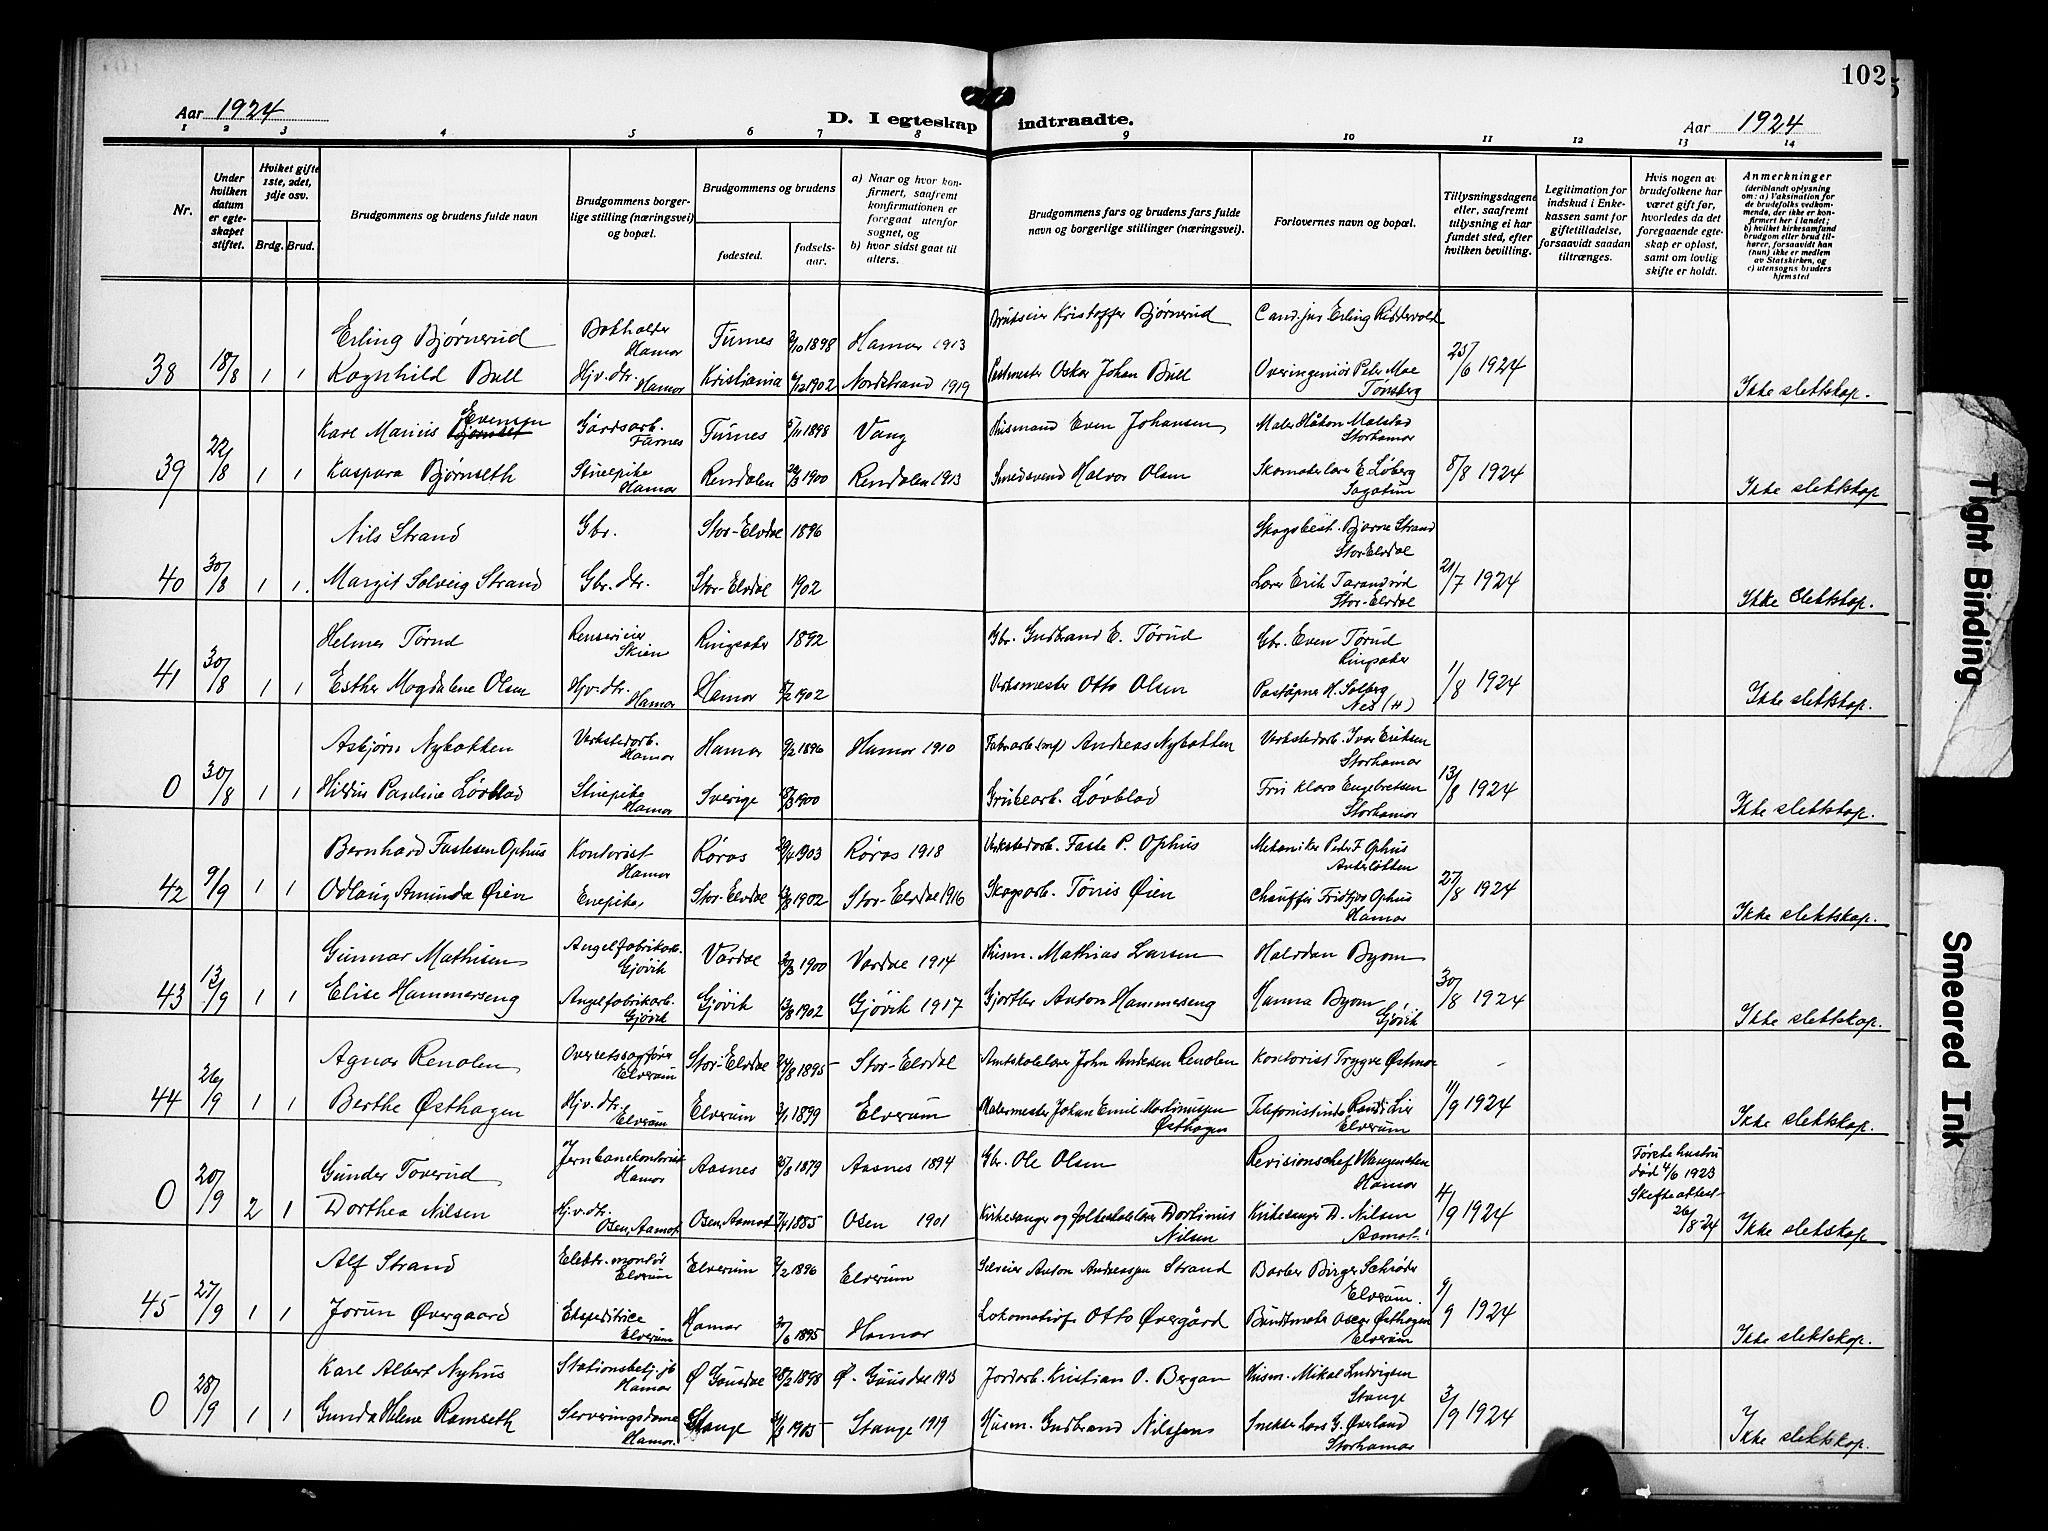 102
Aar 1924
D. I egteskap indtraadte.
Aar 1924
1 2 3 4 5 6 7 8 9 10 11 12 13 14
Nr.
Under hvilken datum er egteskapet stiftet.
Hvilket gifte 1ste, 2det, 3dje osv.
Brdg. Brud.
Brudgommens og brudens fulde navn
Brudgommens borgerlige stilling (næringsvei) og bopæl.
Brudgommens og brudens
fødested.
fødselsaar.
a) Naar og hvor konfirmert, saafremt konfirmationen er foregaat utenfor sognet, og
b) hvor sidst gaat til alters.
Brudgommens fars og brudens fars fulde navn og borgerlige stillinger (næringsvei).
Forlovernes navn og bopæl.
Tillysningsdagene eller, saafremt tillysning ei har fundet sted, efter hvilken bevilling.
Legitimation for indskud i Enkekassen samt for giftetilladelse, forsaavidt saadan tiltrænges.
Hvis nogen av brudefolkene har været gift før, hvorledes da det foregaaende egteskap er opløst, samt om lovlig skifte er holdt.
Anmerkninger
(deriblandt oplysning om: a) Vaksination for de brudefolks vedkommende, der ikke er konfirmert her i landet; b) hvilket kirkesamfund brudgom eller brud tilhører, forsaavidt han (hun) ikke er medlem av Statskirken, og c) utensogns bruders hjemsted
Erling Bjørnerud Bokholder Hamar Furnes 2/10 1898 Hamar 1913 Brukseier Kristoffer Bjørnerud Cand. jur Erling Riddervold
38 18/8 1 1 Ragnhild Bull Hjv. dtr. Hamar Kristiania 6/12 1902 Nordstrand 1919 Postmester Oskar Johan Bull Overingeniør Peter Moe Tønsberg 25/6 1924 Ikke slektskap.
Karl Marius Evensen Gårdsarb. Furnes Furnes 5/11 1898 Vang Husmand Even Johansen Maler Håkon Malstad Storhamar
39 22/8 1 1 Kaspara Bjørnseth Stuepike Hamar Rendalen 1900 Rendalen 1913 Smedsvend Halvor Olsen Skomakerlærer E. Løberg Sagatun 8/8 1924 Ikke slektskap
Nils Strand Gbr. Stor-Elvdal 1896 Skogsbest. Bjarne Strand Stor-Elvdal
40 30/8 1 1. Margit Solveig Strand Gbr. dtr. Stor-Elvdal 1902 Lærer Erik Tarandrød Stor-Elvdal 21/7 1924 Ikke slektskap.
Helmer Tørud Renserieier Skien Ringsaker 1892 Gbr. Gudbrand E. Tørud Gbr. Even Tørud Ringsaker
41 30/8 1 1 Esther Magdalene Olsen Hjv. dtr. Hamar Hamar 8/2 1902 Verksmester Otto Olsen Poståpner H. Solberg Nes (H) 1/8 1924 Ikke slektskap.
Asbjørn Nybakken Verkstedarb. Hamar Hamar 9/2 1896 Hamar 1910 Fabrarb. Andreas Nybakken Verkstedarb. Ivar Eriksen Storhamar
0 30/8 1 1 Hildur Pauline Løvblad Stuepike Hamar Sverige 8/3 1900 Grubearb. Løvblad Fru Klara Engebretsen Storhamar 13/8 1924 Ikke slektskap.
Bernhard Fastesen Ophus Kontorist Hamar Røros 29/4 1903 Røros 1918 Verkstedarb. Faste P. Ophus Mekaniker Peder F. Ophus
42 9/9 1 1 Odlaug Amunda Øien Enepike Stor-Elvdal 1902 Stor-Elvdal 1916 Skogsarb. Tønnes Øien Chauffør Fridtjov Ophus Hamar 27/8 1924 Ikke slektskap.
Gunnar Mathisen Angelfabrikarb. Gjøvik Vardal 1900 Vardal 1914 Husm. Mathias Larsen Halvdan Byom
43 13/9 1 1 Elise Hammerseng Angelfabrikarb. Gjøvik Gjøvik 13/8 1902 Gjøvik 1917 Gjørtler Anton Hammerseng Hanna Byom Gjøvik 30/8 1924 Ikke slektskap.
Agnar Renolen Overretssagfører Elverum Stor-Elvdal 24/8 1895 Stor-Elvdal Amtskolelærer John Andersen Renolen Kontorist Trygve Østmo
44 26/9 1 1 Berthe Østhagen Hjv. dtr. Elverum Elverum 3/1 1899 Elverum Malermester Johan Emil Martinussen Østhagen Telefonistinde Randi Lier Elverum 11/9 1924 Ikke slektskap.
Gunder Toverud Jernbanekontorist Hamar Aasnes 25/8 1879 Aasnes 1894 Gbr. Ole Olsen Revisionschef Wangensten Hamar Første hustru død 4/6 1923
0 20/9 2 1 Dorthea Nilsen Hjv. dtr. Osen, Aamot Osen, Aamot 7/4 1885 Osen 1901 Kirkesanger og folkeskolelærer Dortinus Nilsen Kirkesanger D. Nilsen Aamot 4/9 1924 Skifteattest 26/8-24 Ikke slektskap
Alf Strand Elektr. montør Elverum Elverum 3/2 1896 Elverum Sæleier Anton Andreassen Strand Barber Birger Schrøder Elverum.
45 27/9 1 1 Jorun Øvergaard Ekspeditrice Elverum Hamar 30/6 1895 Hamar Lokomotivf. Otto Øvergård Buntmaker Oscar Østhagen Elverum 9/9 1924 Ikke slektskap.
Karl Albert Nyhus Stationsbetj. jb Hamar Ø Gausdal 28/2 1898 Ø. Gausdal 1913 Jordarb. Kristian O. Bergan Husm. Mikal Ludvigsen Stange
0 28/9 1 1 Gunda Helene Ramseth Serveringsdame Hamar. Stange 1905 Stange 1919 Husm. Gudbrand Nilssen Snekker Lars G. Øverland Storhamar 3/9 1924 Ikke slektskap.
Tight Binding
Smeared Ink